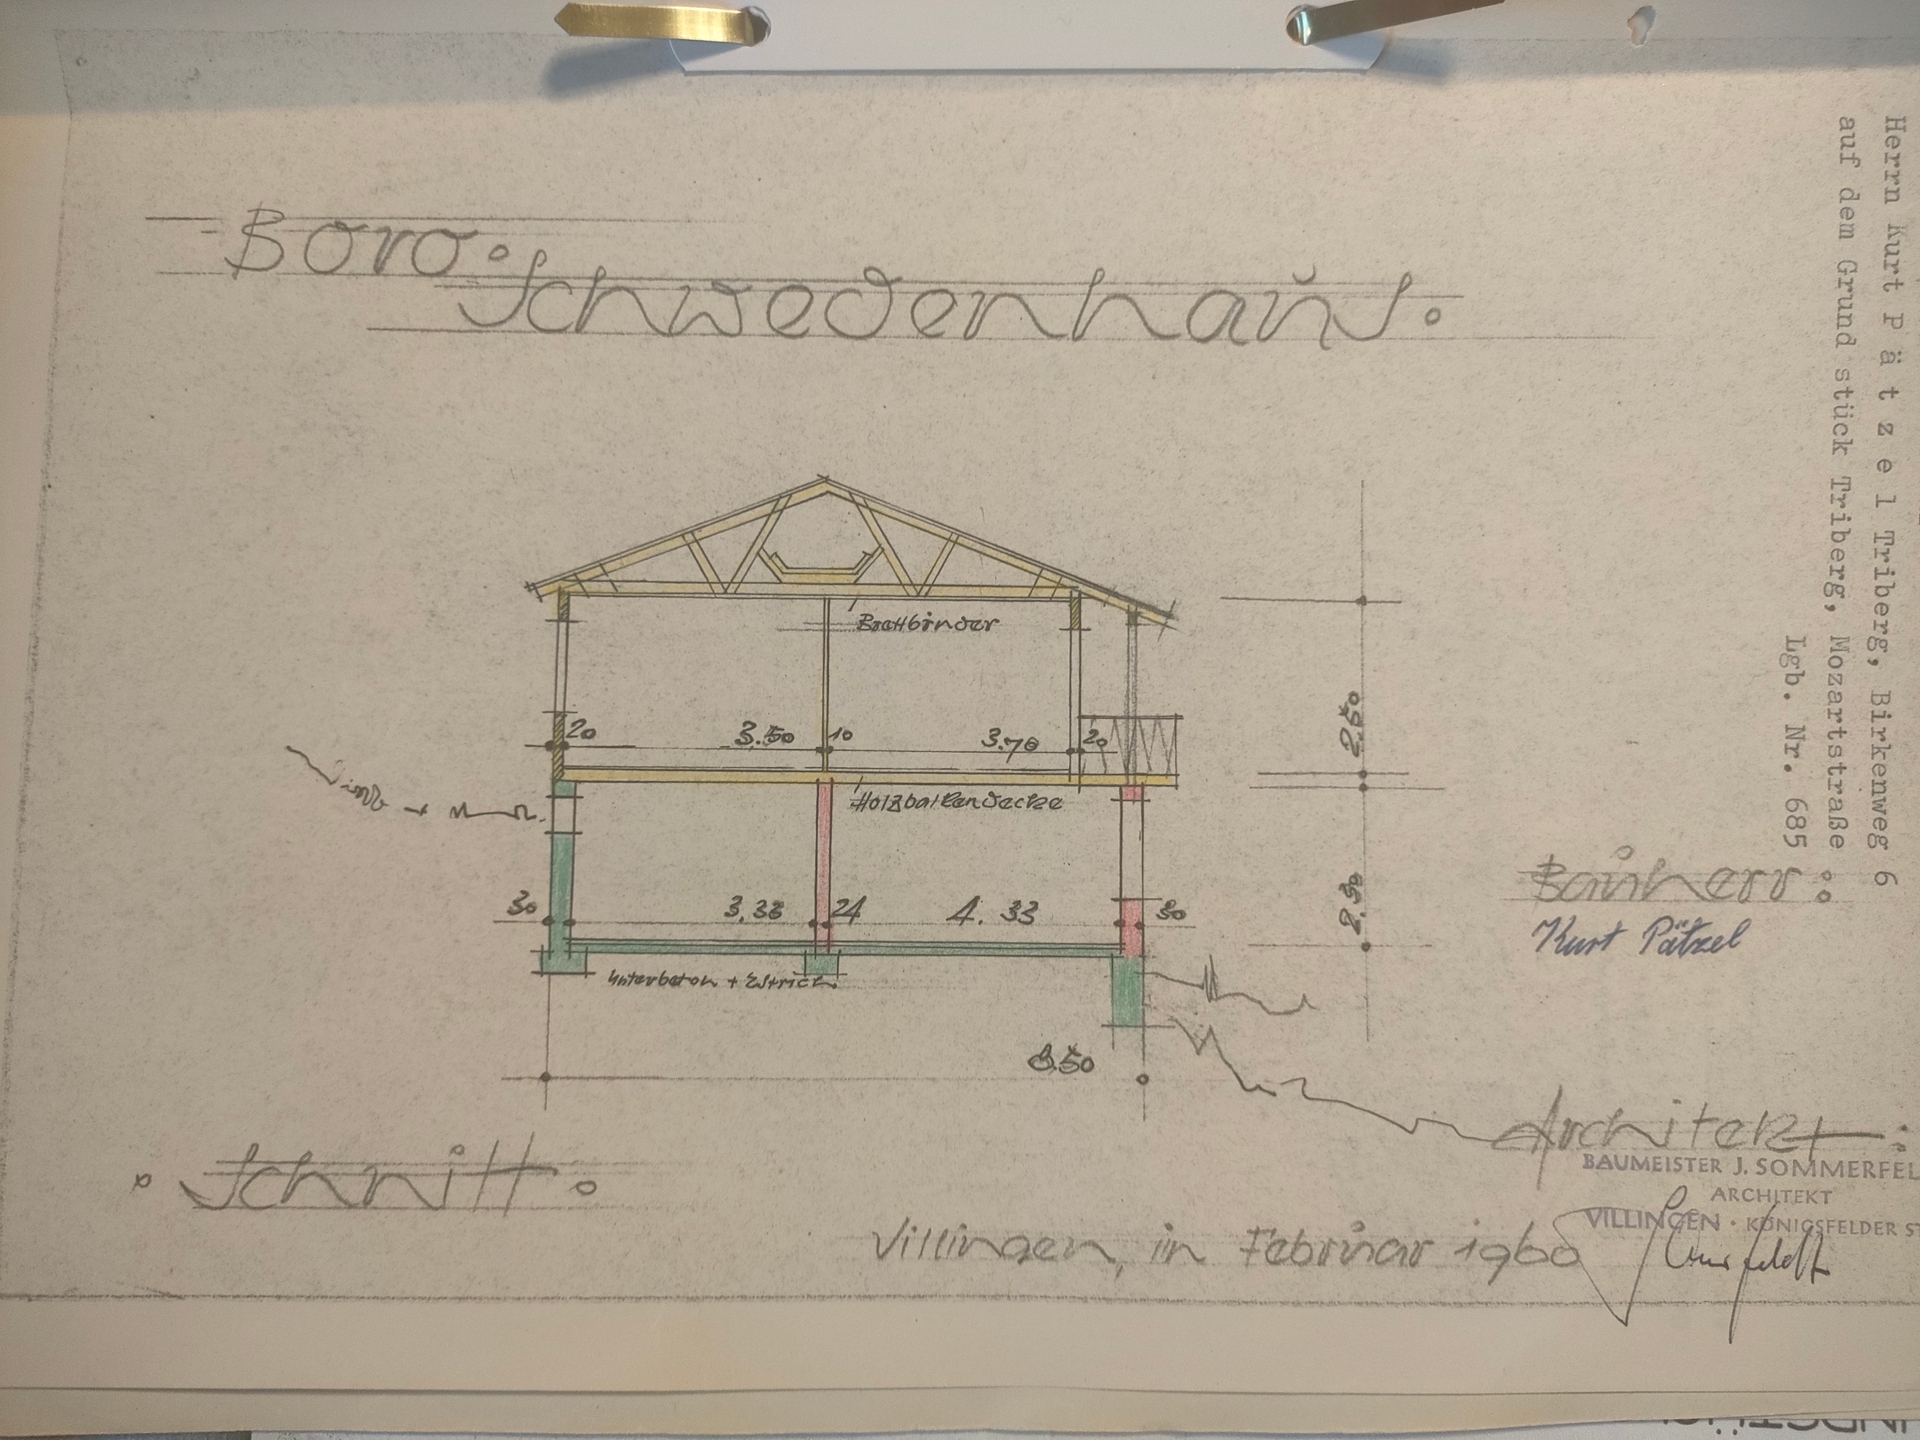 Boro-
Schwedenhaus.
Herrn Kurt Pätzel Triberg, Birkenweg 6
auf dem Grundstück Triberg, Mozartstraße
Lgb. Nr. 685
Brettbinder
20 3.50 10 3.70 20
2.50
Holzbalkendecke
30 3.33 24 4.33 30
2.30
Unterbeton + Estrich.
8.50
Bauherr:
Kurt Pätzel
Architekt:
BAUMEISTER J. SOMMERFEL
ARCHITEKT
VILLINGEN · KÖNIGSFELDER ST
Schnitt:
Villingen, im Februar 1960